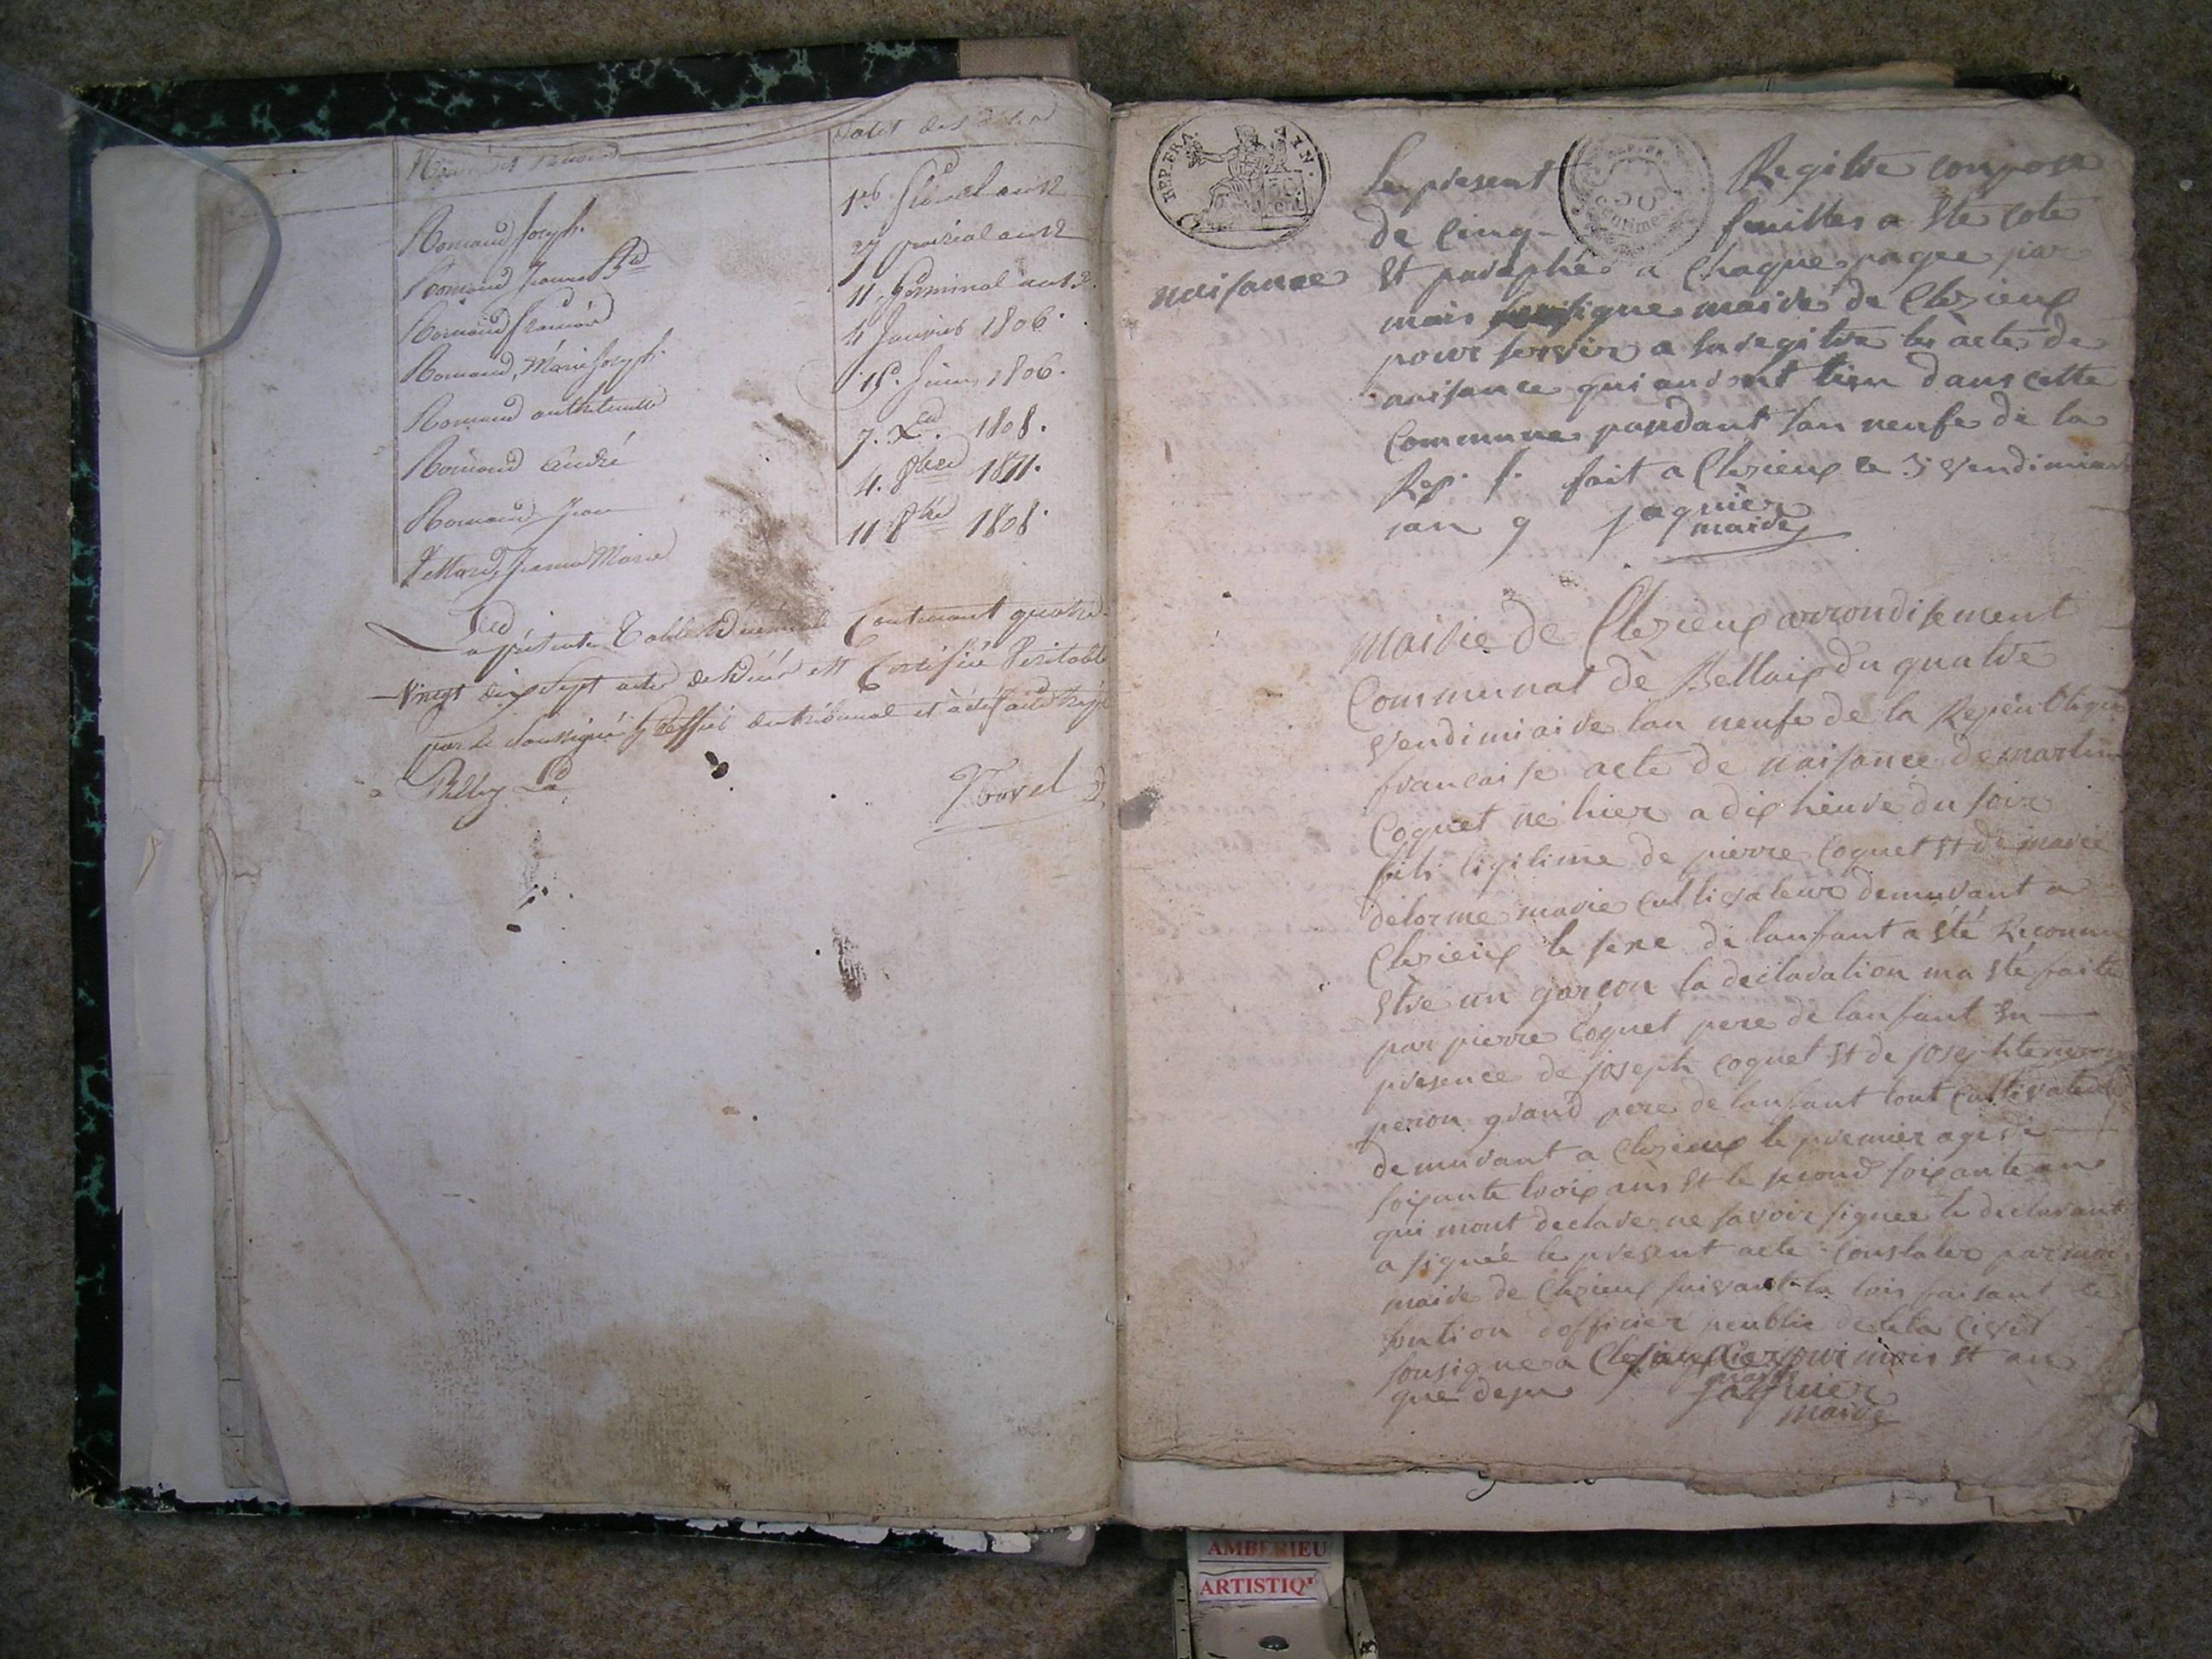 Noms et Prénoms
Dates des décès
Romand Joseph.
1er floréal an 12
Romand Jeanne
27 prairial an 12
Romand
11. Germinal an 13.
Romand, Marie Joseph.
4 Janvier 1806.
Romand Anthelmette
15. Juin 1806.
Romand André
7. 1808.
Romand Jean
4. 8bre 1811.
Jeanne Marie
11 8bre 1808.
La présente Table Décennale Contenant quatre
vingt dix sept actes de Décès est Certifiée Véritable
par le soussigné Greffier du tribunal
Belley
REP. FRA.
50
centimes
Le present Registre compose
de cinq feuilles a Ete cote
naisance
Et paraphé a Chaque pagee par
mois sousigne maire de Chezieux
pour servir a Inregitre les acte de
naisance qui auront lieu dans cette
Commune pandant lan neufe de la
Rep. f. fait a Chezieux le 3 vendimiair
lan 9 jaquier
maire
mairie de Chezieux arrondisement
Communal de Bellaix du quatre
vendimiaire lan neufe de la Republique
francaise acte de naisance de martin
Coquet ne hier a dix heure du soire
fils ligitime de pierre Coquet Et de marie
delorme marie cultivateur demurant a
Chezieux le sexe de lanfant a été Reconnu
Etre un garçon la declaration ma Eté faite
par pierre Coquet pere de lanfant En
presence de joseph coquet Et de joseph
peron grand pere de lanfant tout Cultivateur
demurant a Chezieux le premier age de
soixante troix ans Et le second soixante an
qui mont declare ne savoir signee le declarant
a signée le présent acte Constater par moi
maire de Chezieux suivant la lois faisant le
fontion dofficier peublic de leta civil
sousigne a Chezieux les jour mois Et an
que desu jaquier
maire
AMBERIEU
ARTISTIQ